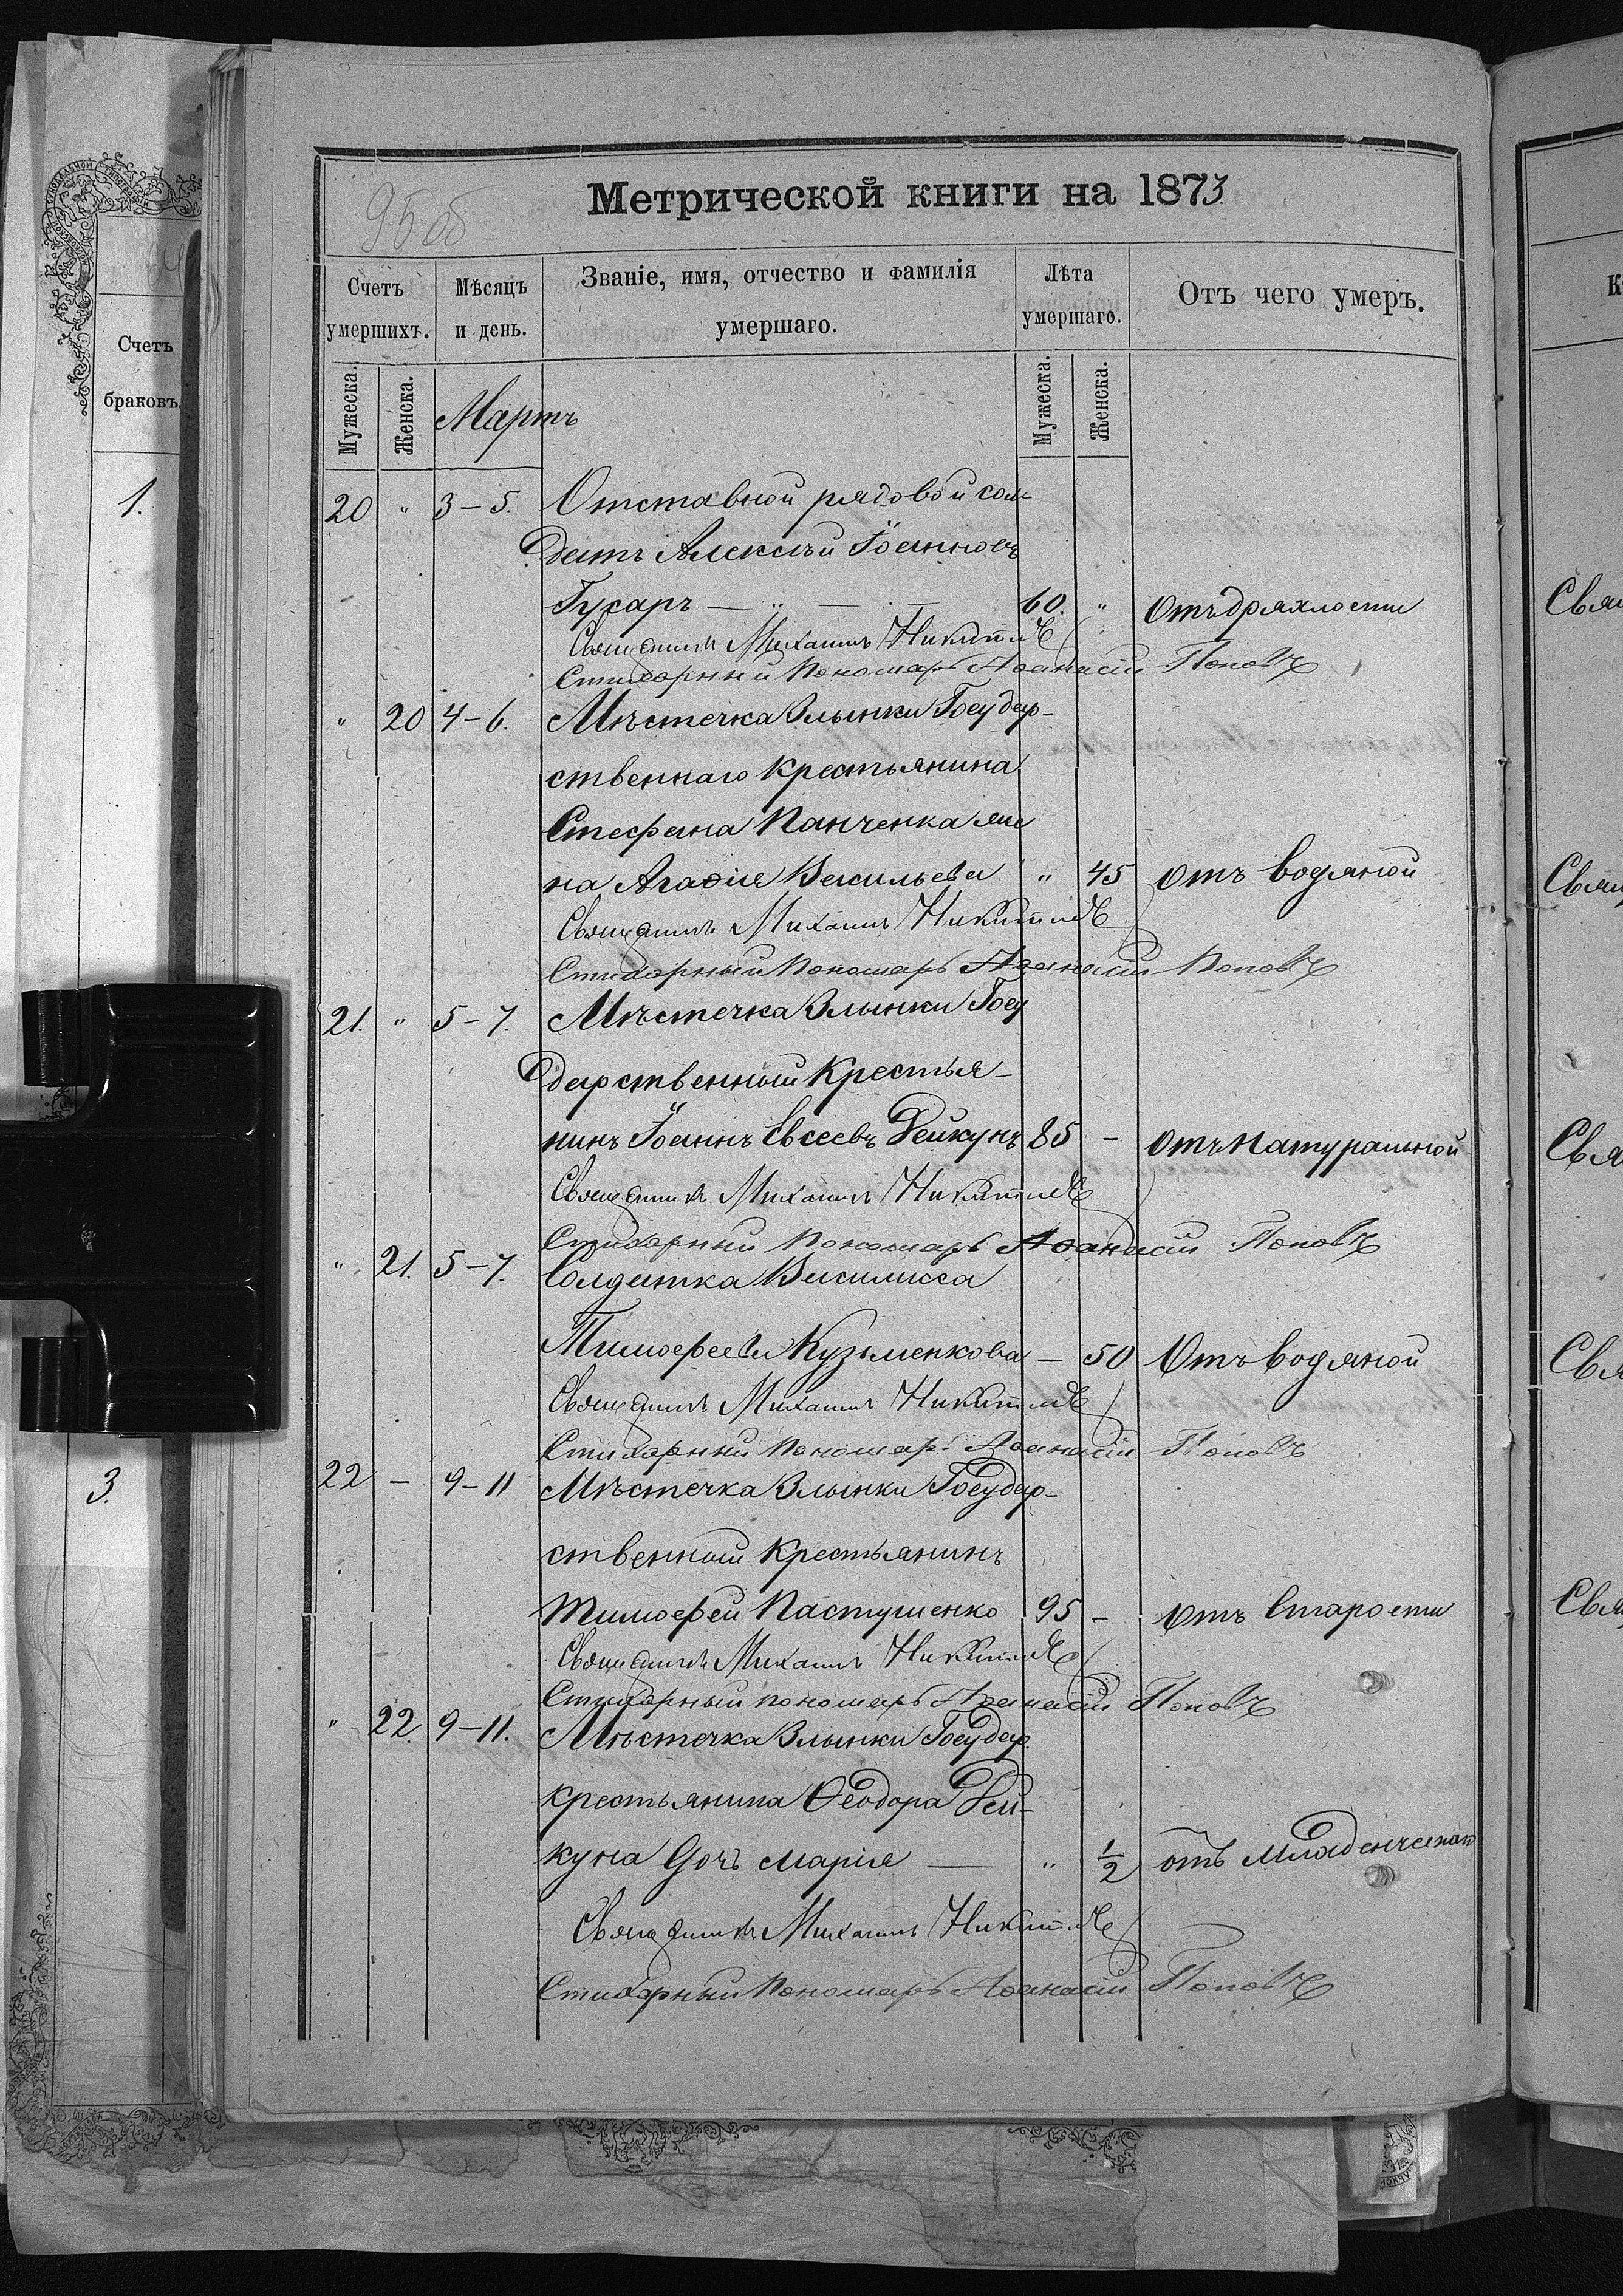 95об
Метрической книги на 1873
Счетъ умершихъ.
Мѣсяцъ и день.
Званіе, имя, отчество и фамилія умершаго.
Лѣта умершаго.
Отъ чего умеръ.
Мужеска. Женска. Мартъ Мужеска. Женска.
20 " 3-5. Отставной рядовой сол-
датъ Алексѣй Іоанновъ
Гусаръ — " — 60. " Отъ дряхлости
Священникъ Михаилъ
Стихарный Пономарь Аѳанасій Поповъ
" 20 4-6. Мѣстечка Злынки Государ-
ственнаго крестьянина
Стефана Панченка же
на Агаѳія Васильева " 45 Отъ водяной
Священникъ Михаилъ
Стихарный Пономарь Аѳанасій Поповъ
21. " 5-7. Мѣстечка Злынки Госу
дарственный крестья-
нинъ Іоаннъ Евсеевъ Дейкунъ 85 - Отъ Натуральной
Священникъ Михаилъ
Стихарный Пономарь Аѳанасій Поповъ
" 21. 5-7. Солдатка Василисса
Тимофеева Кузьменкова — 50 Отъ водяной
Священникъ Михаилъ
Стихарный Пономарь Аѳанасій Поповъ
22 - 9-11 Мѣстечка Злынки Государ-
ственный крестьянинъ
Тимофей Пастушенко 95 - Отъ Старости
Священникъ Михаилъ
Стихарный пономарь Аѳанасій Поповъ
" 22. 9-11. Мѣстечка Злынки Государ.
крестьянина Ѳеодора Дей-
куна дочь Марія — " 1/2 отъ Младенческой
Священникъ Михаилъ
Стихарный Пономарь Аѳанасій Поповъ
Счетъ
браковъ.
1.
3.
Свя
Свящ
Свя
Свя
Свя